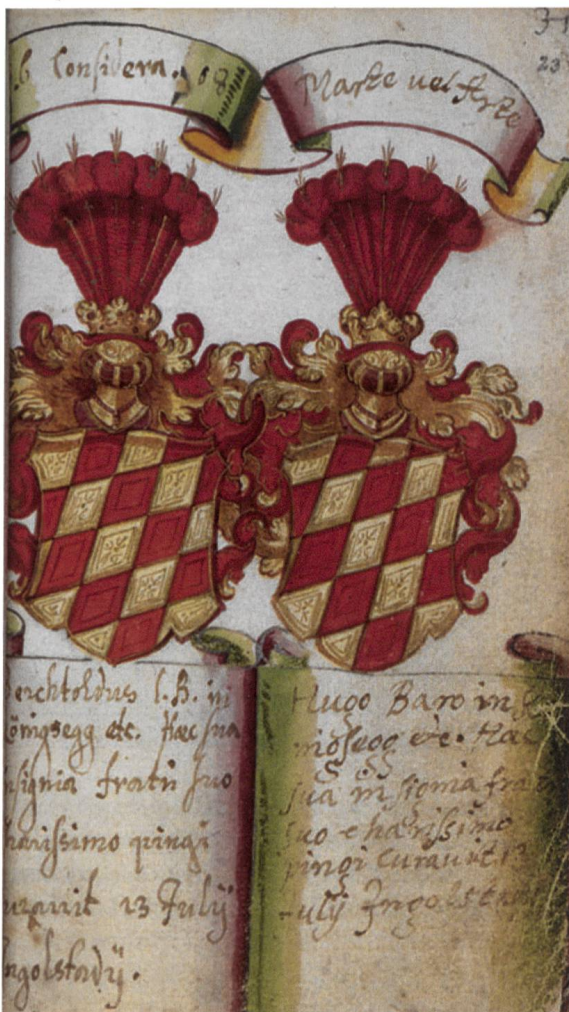 6 Considera. 08
Marte vel Arte
23
erchtoldus l. B. in
Königsegg etc. Hæc sua
nsignia fratri suo
harissimo pingi
uravit 13 Julij
ngolstadij.
Hugo Baro in
nigsegg etc. Hæc
sua insignia fra
suo charissimo
pingi curavit 13
Julij Ingolstad